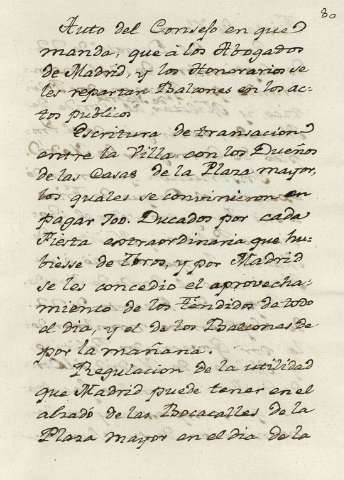 80
Auto del Consejo en que
manda, que â los Abogados
de Madrid, y los Honorarios se
les repartan Balcones en los ac-
tos publicos
Escritura de transacion
entre la Villa con los Dueños
de las Casas de la Plaza mayor,
los quales se convinieron en
pagar 700. Ducados por cada
Fiesta extraordinaria que hu-
biesse de toros, y por Madrid
se les concedio el aprovecha-
miento de los tendidos de todo
el dia, y el de los Balcones de
por la mañana.
Regulacion de la utilidad
que Madrid puede tener en el
alzado de las Bocacalles de la
Plaza mayor en el dia de la